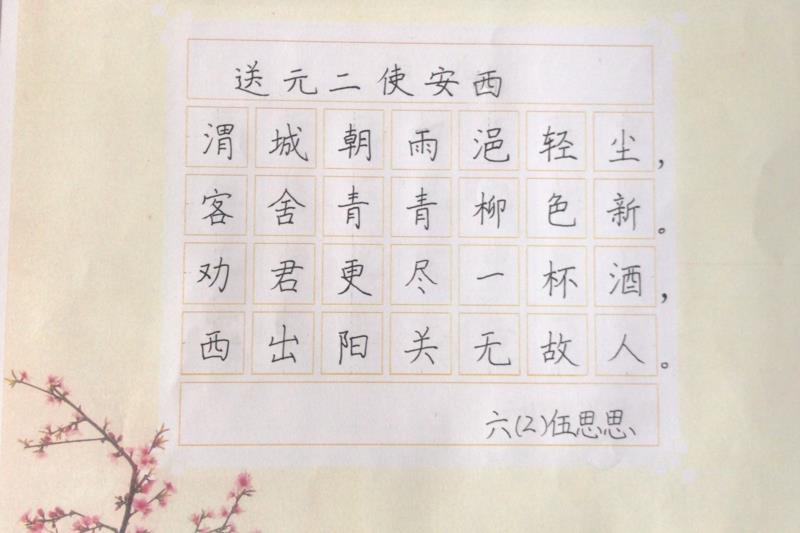 送元二使安西
渭城朝雨浥轻尘，
客舍青青柳色新。
劝君更尽一杯酒，
西出阳关无故人。
六(2)伍思思